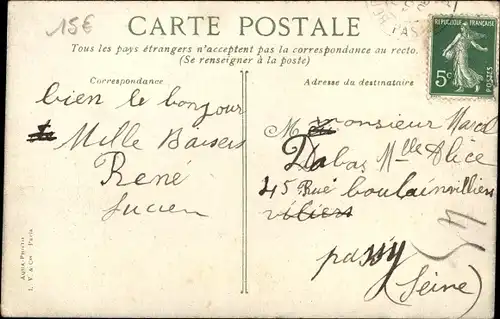 15€
CARTE POSTALE
Tous les pays étrangers n'acceptent pas la correspondance au recto.
(Se renseigner à la poste)
Correspondance
Adresse du destinataire
RÉPUBLIQUE FRANÇAISE
5c
POSTES
bien le bonjour
Mille Baisers
René
Lucien
M monsieur Marcel
Dabas Mlle Alice
45 Rue boulainvilliers
viliers
passy
(Seine)
AQUA PHOTO
L. V. & Cie Paris